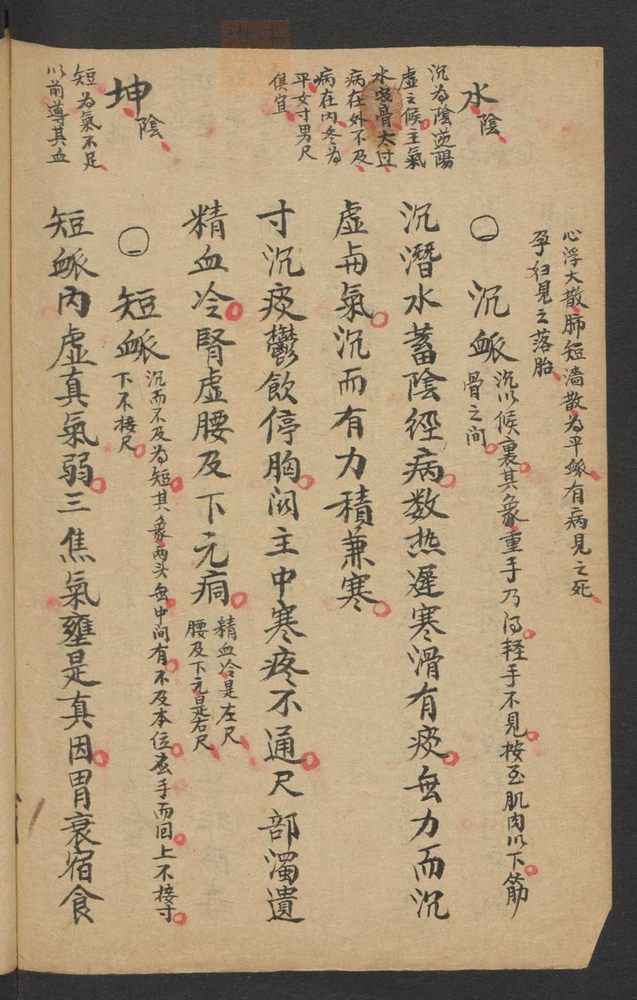 心浮大散肺短濇散為平脈有病見之死
孕妇見之落胎
水陰
沉為陰逆陽
虛之候主氣
水㳄骨太过
病在外不及
病在内冬為
平女寸男尺
俱宜
〇沉脈沉以候裏其象重手乃得轻手不見按至肌肉以下筋
骨之间
沉潛水蓄陰經病数热遲寒滑有痰無力而沉
虛毋氣沉而有力積兼寒
寸沉痰鬱飲停胸関主中寒疼不通尺部濁遺
精血冷腎虛腰及下元痌精血冷是左尺
腰及下元是右尺
坤陰
短為氣不足
以前導其血
〇短脈沉而不及為短其象两头無中间有不及本位应手而回上不接寸
下不接尺
短脈内虛真氣弱三焦氣壅是真因胃衰宿食